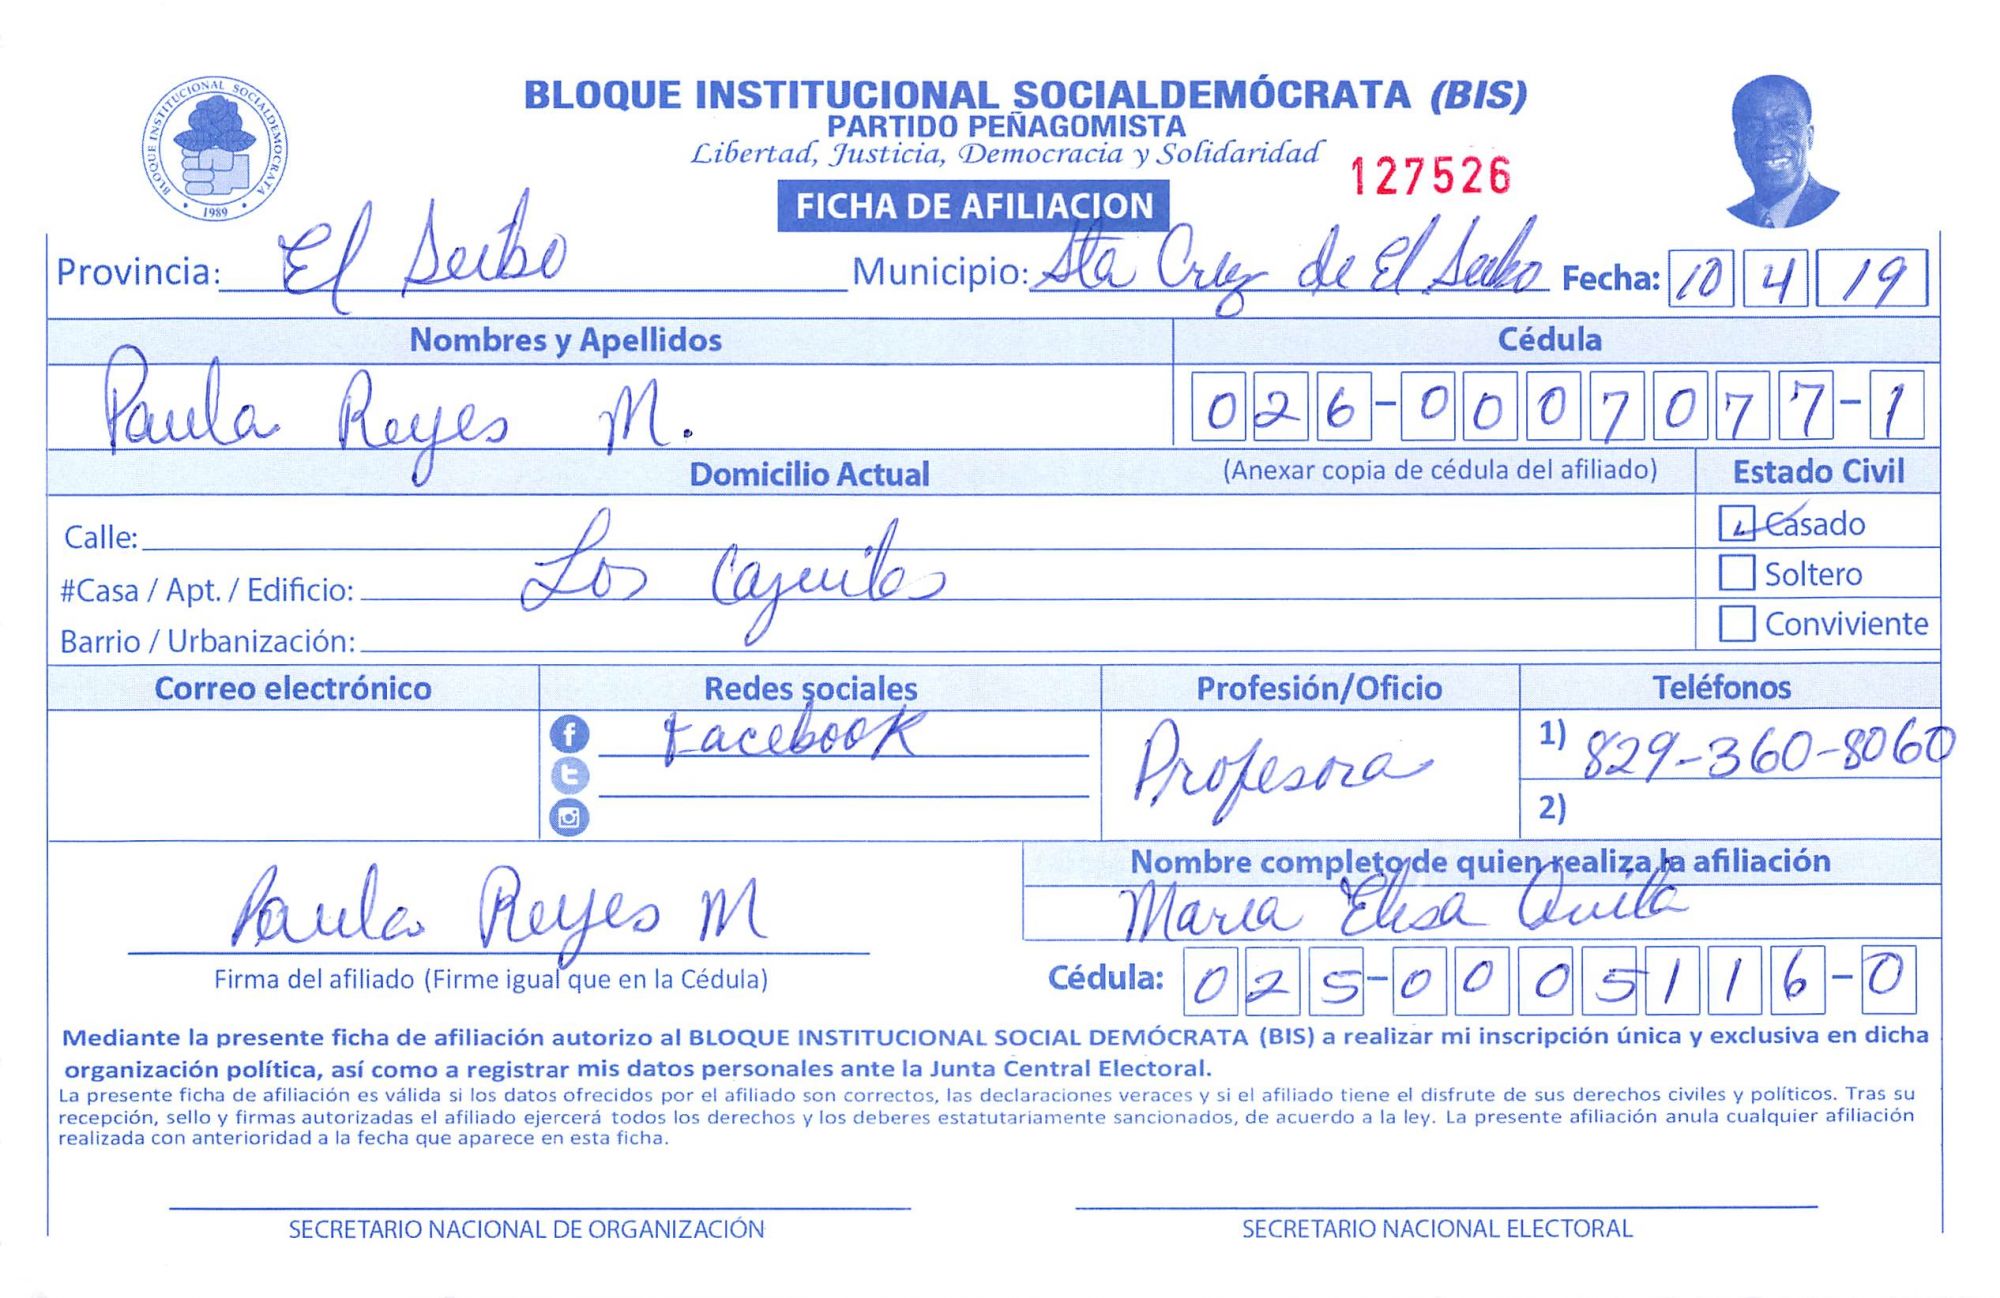 BLOQUE INSTITUCIONAL SOCIALDEMÓCRATA (BIS)
PARTIDO PEÑAGOMISTA
Libertad, Justicia, Democracia y Solidaridad
127526
BLOQUE INSTITUCIONAL SOCIALDEMOCRATA
1989
FICHA DE AFILIACION
Provincia: El Seibo Municipio: Sta Cruz de El Seibo Fecha: 10 4 19
Nombres y Apellidos Cédula
Paula Reyes M. 026-0007077-1
Domicilio Actual (Anexar copia de cédula del afiliado) Estado Civil
Calle: Casado
#Casa / Apt. / Edificio: Los Cajuiles Soltero
Barrio / Urbanización: Conviviente
Correo electrónico Redes sociales Profesión/Oficio Teléfonos
Facebook Profesora 1) 829-360-8060
2)
Nombre completo de quien realiza la afiliación
Paula Reyes M Maria Elisa
Firma del afiliado (Firme igual que en la Cédula) Cédula: 025-0005116-0
Mediante la presente ficha de afiliación autorizo al BLOQUE INSTITUCIONAL SOCIAL DEMÓCRATA (BIS) a realizar mi inscripción única y exclusiva en dicha
organización política, así como a registrar mis datos personales ante la Junta Central Electoral.
La presente ficha de afiliación es válida si los datos ofrecidos por el afiliado son correctos, las declaraciones veraces y si el afiliado tiene el disfrute de sus derechos civiles y políticos. Tras su
recepción, sello y firmas autorizadas el afiliado ejercerá todos los derechos y los deberes estatutariamente sancionados, de acuerdo a la ley. La presente afiliación anula cualquier afiliación
realizada con anterioridad a la fecha que aparece en esta ficha.
SECRETARIO NACIONAL DE ORGANIZACIÓN SECRETARIO NACIONAL ELECTORAL